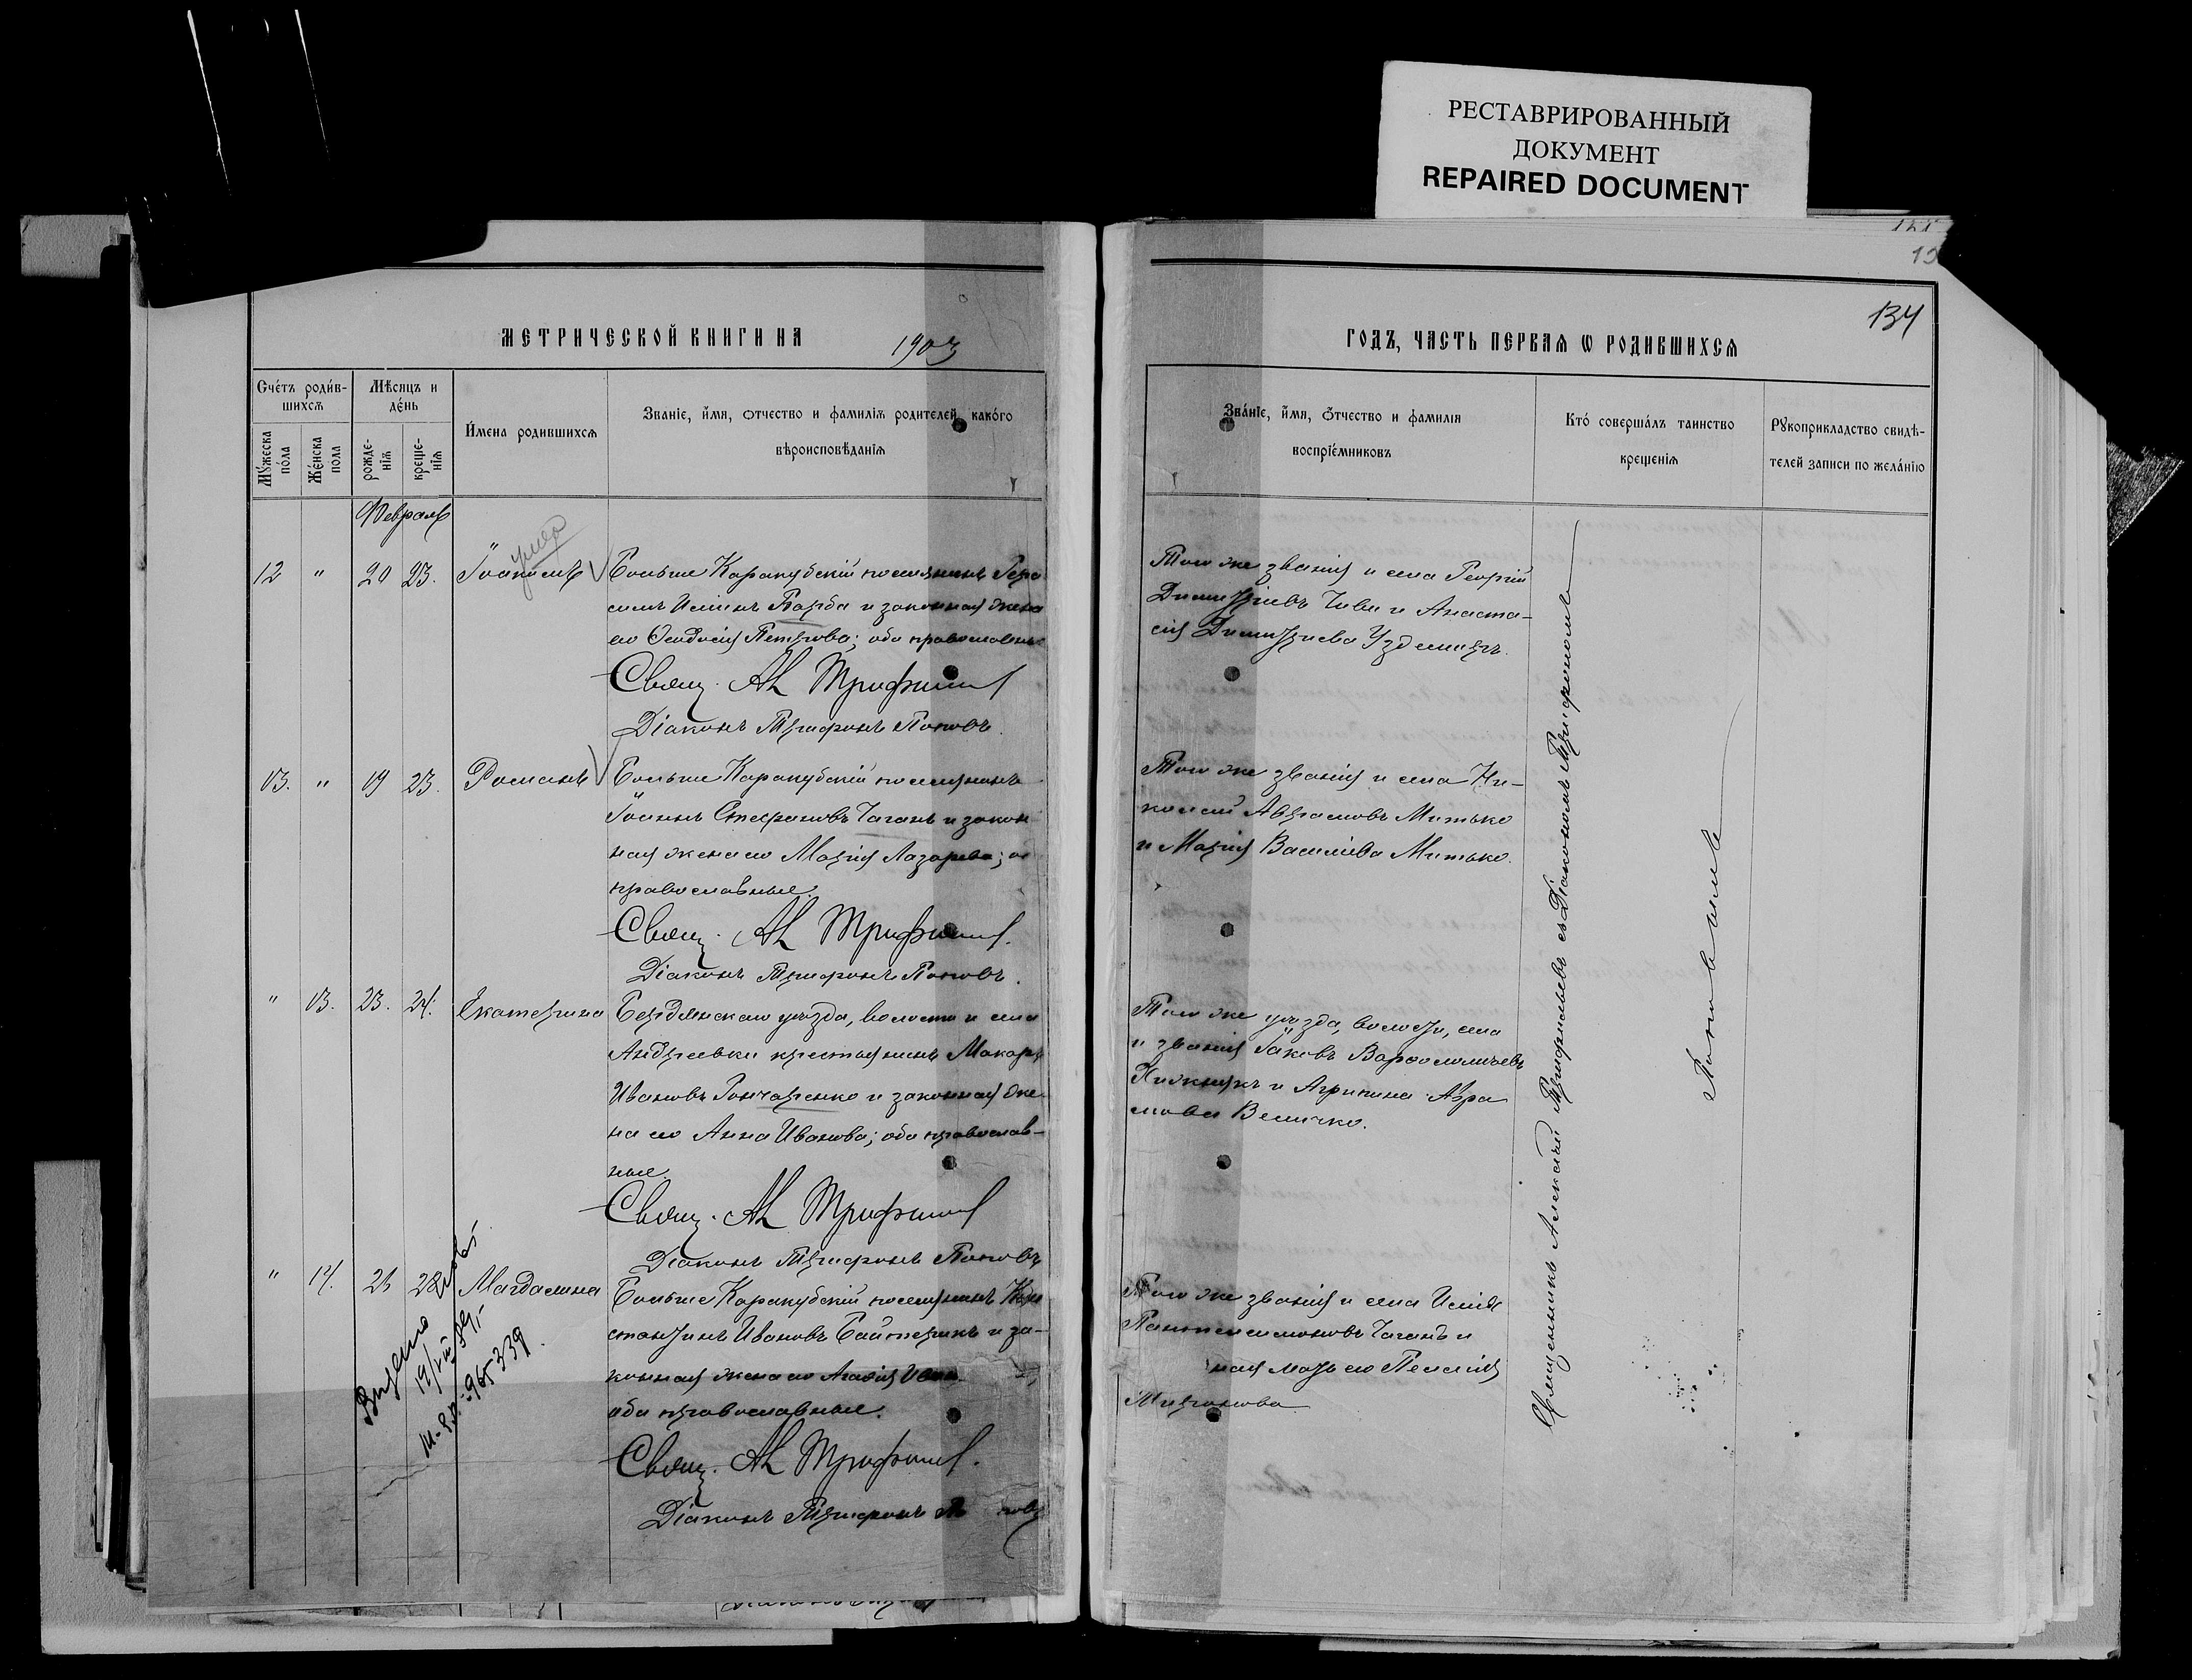 РЕСТАВРИРОВАННЫЙ
ДОКУМЕНТ
REPAIRED DOCUMENT
134
МЕТРИЧЕСКОЙ КНИГИ НА 1903
ГОДЪ, ЧАСТЬ ПЕРВАЯ Ѡ РОДИВШИХСѦ
Счéтъ родѝв-
шихсѧ
Мꙋ́жеска
по́ла
Же́нска
пола
Мѣсяцъ и
де́нь
рожде-
нїѧ
креще-
нїѧ
И́мена родившихсѧ
Званїе, и́мя, ѻтчество и фамилїѧ родителей, како́го
вѣроисповѣданїѧ
Зва́нїе, и́мя, ѻ́тчество и фамилїя
воспрїе́мниковъ
Кто́ соверша́лъ таинство
крещенїѧ
Рꙋкоприкладство свидѣ-
телей записи по жела́нїю
Февраль
12 " 20 23. Іоакимъ
умер
Больше Каракубскій поселянинъ Гера
симъ Иліинъ Барба и законная жена
его Ѳеодосія Петрова; оба православны
Свящ. Ал Трифильев
Діаконъ Трифонъ Поповъ.
Того же званія и села Георгій
Димитріевъ Чивчи и Анаста-
сія Димитріева Уздемиръ.
13. " 19 23. Романъ
Больше Каракубскій поселянинъ
Іоаннъ Стефановъ Чаганъ и закон
ная жена его Марія Лазарева; об
православные.
Свящ. Ал Трифильев.
Діаконъ Трифонъ Поповъ.
Того же званія и села Ни-
колай Авраамовъ Митько
и Марія Василіева Митько.
" 13. 23. 24. Екатерина
Бердянскаго уѣзда, волости и села
Андреевки крестьянинъ Макарій
Ивановъ Гончаренко и законная же-
на его Анна Иванова; оба православ-
ные.
Свящ. Ал Трифильев
Діаконъ Трифонъ Поповъ
Того же уѣзда, волости, села
и званія Іаковъ Варѳоломѣевъ
и Агрипина Авра
мова Величко.
" 14. 21 28 Магдалина
Больше Каракубскій поселянинъ Кон
стантинъ Ивановъ Байтеракъ и за-
конная жена его Агаѳія Иван
оба православные.
Свящ. Ал Трифильев.
Діаконъ Трифонъ По повъ
Того же званія и села Илія
Пантелеимоновъ Чаганъ и
ная мать его Пелагія
Миронова
Священникъ Алексѣй Трифильевъ съ Діакономъ Трифономъ
Поповымъ
Видено
III-
965339